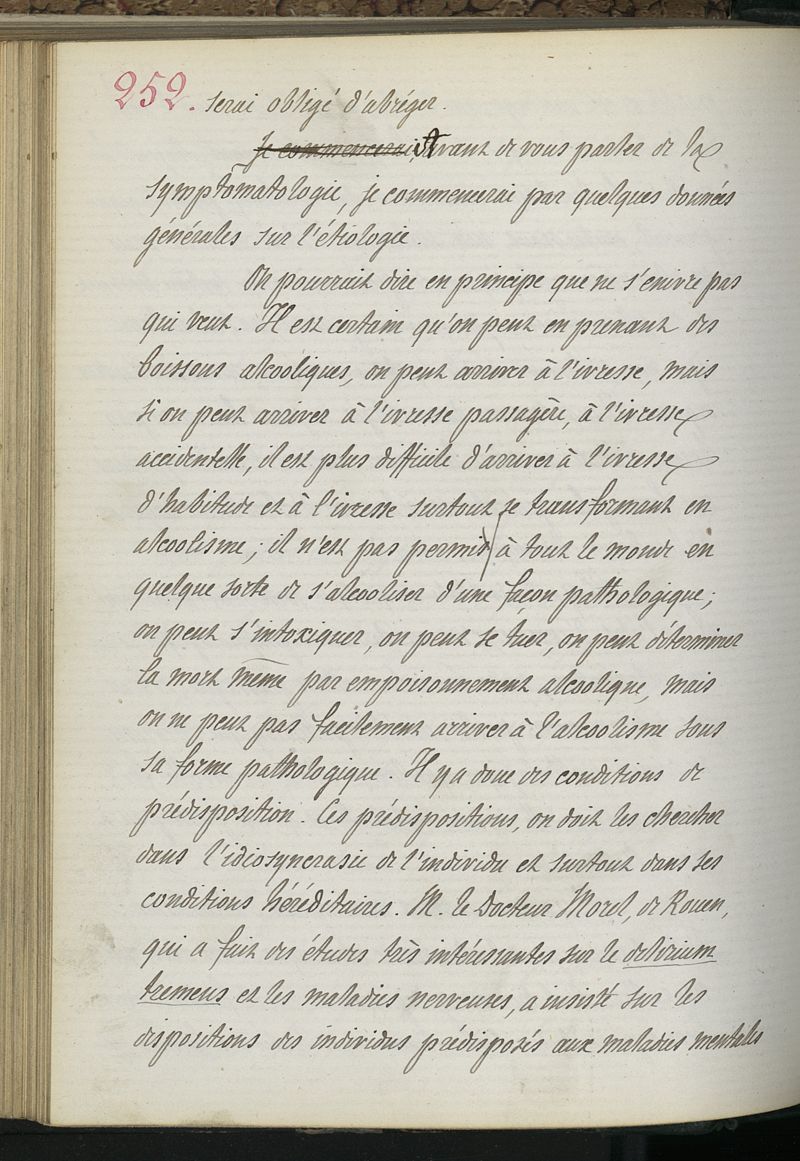 252. serai obligé d'abréger.
Je commencerai, Avant de vous parler de la
symptomatologie, je commencerai par quelques données
générales sur l'étiologie.
On pourrait dire en principe que ne s'enivre pas
qui veut. Il est certain qu'on peut en prenant des
boissons alcooliques, on peut arriver à l'ivresse, mais
si on peut arriver à l'ivresse passagère, à l'ivresse
accidentelle, il est plus difficile d'arriver à l'ivresse
d'habitude et à l'ivresse surtout se transformant en
alcoolisme; il n'est pas permis à tout le monde en
quelque sorte de s'alcooliser d'une façon pathologique;
on peut s'intoxiquer, on peut se tuer, on peut déterminer
la mort même par empoisonnement alcoolique, mais
on ne peut pas facilement arriver à l'alcoolisme sous
sa forme pathologique. Il y a donc des conditions de
prédisposition. Ces prédispositions, on doit les chercher
dans l'idiosyncrasie de l'individu et surtout dans ses
conditions héréditaires. M. le Docteur Morel, de Rouen,
qui a fait des études très intéressantes sur le delirium
tremens et les maladies nerveuses, a insisté sur les
dispositions des individus prédisposés aux maladies mentales